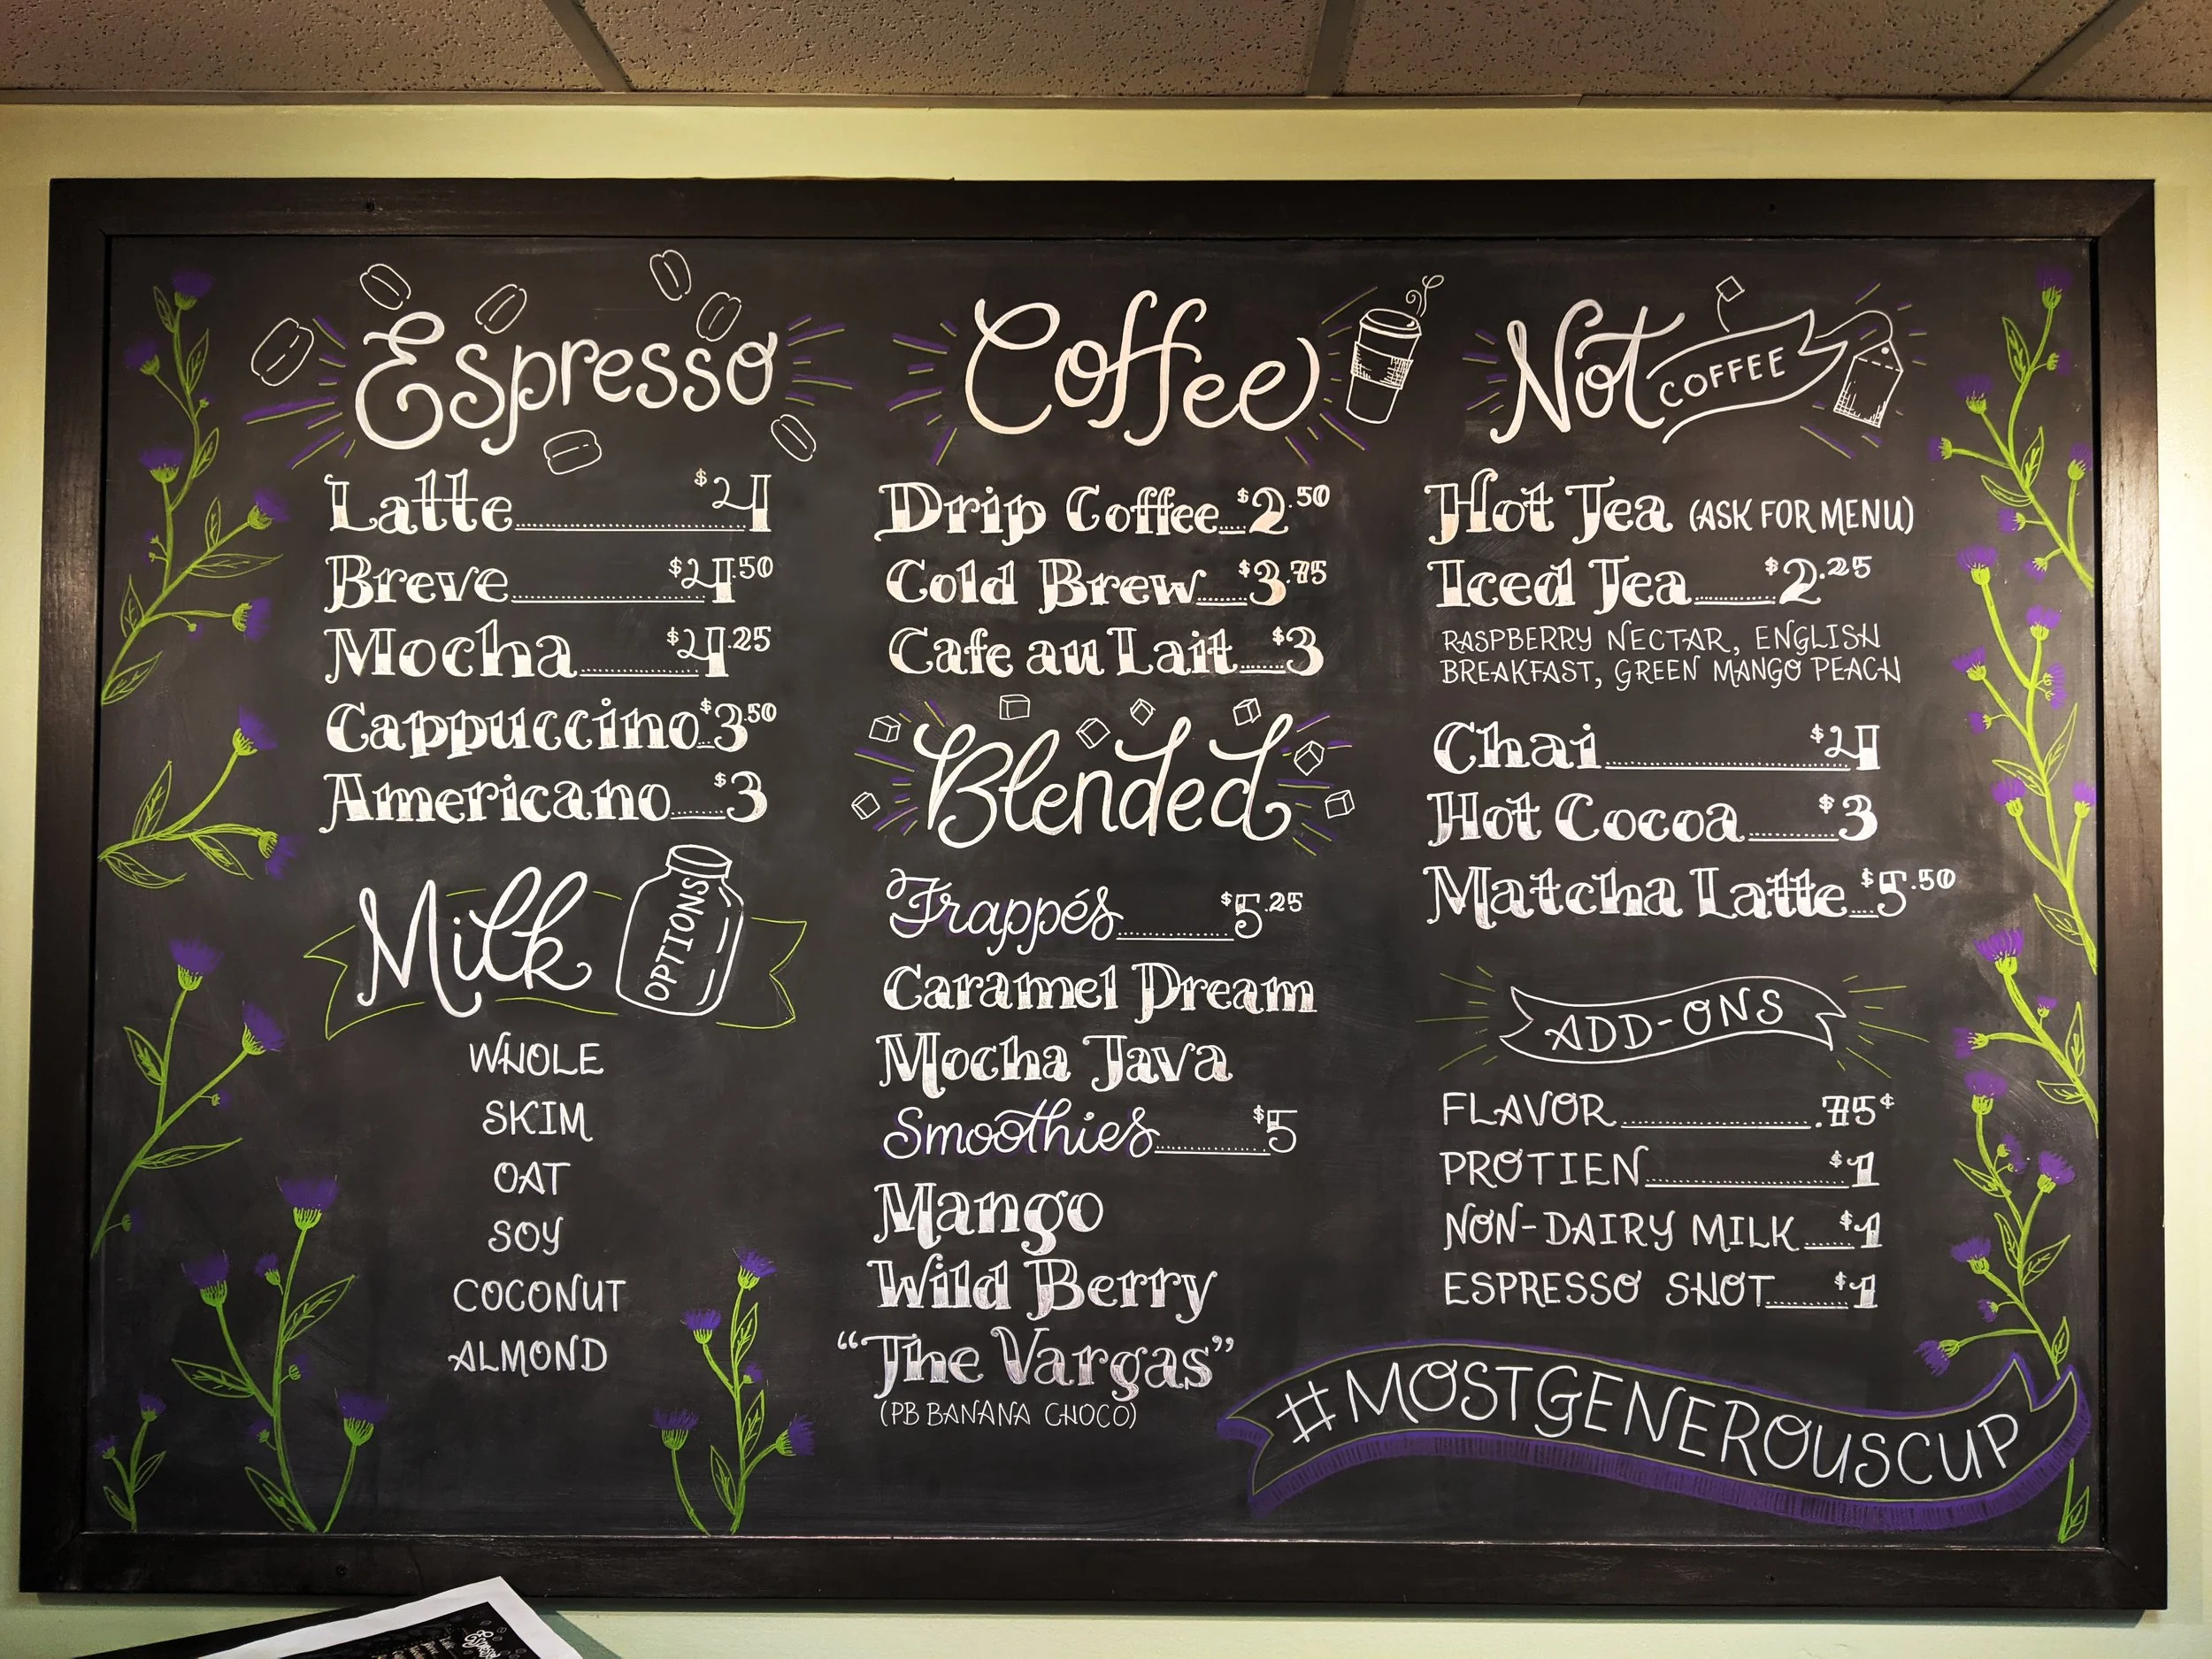 Espresso
Latte $4
Breve $4.50
Mocha $4.25
Cappuccino $3.50
Americano $3
Milk OPTIONS
WHOLE
SKIM
OAT
SOY
COCONUT
ALMOND
Coffee
Drip Coffee $2.50
Cold Brew $3.75
Cafe au Lait $3
Blended
Frappés $5.25
Caramel Dream
Mocha Java
Smoothies $5
Mango
Wild Berry
"The Vargas"
(PB BANANA CHOCO)
Not COFFEE
Hot Tea (ASK FOR MENU)
Iced Tea $2.25
RASPBERRY NECTAR, ENGLISH
BREAKFAST, GREEN MANGO PEACH
Chai $4
Hot Cocoa $3
Matcha Latte $5.50
ADD-ONS
FLAVOR .75¢
PROTIEN $1
NON-DAIRY MILK $1
ESPRESSO SHOT $1
#MOSTGENEROUSCUP
Espresso